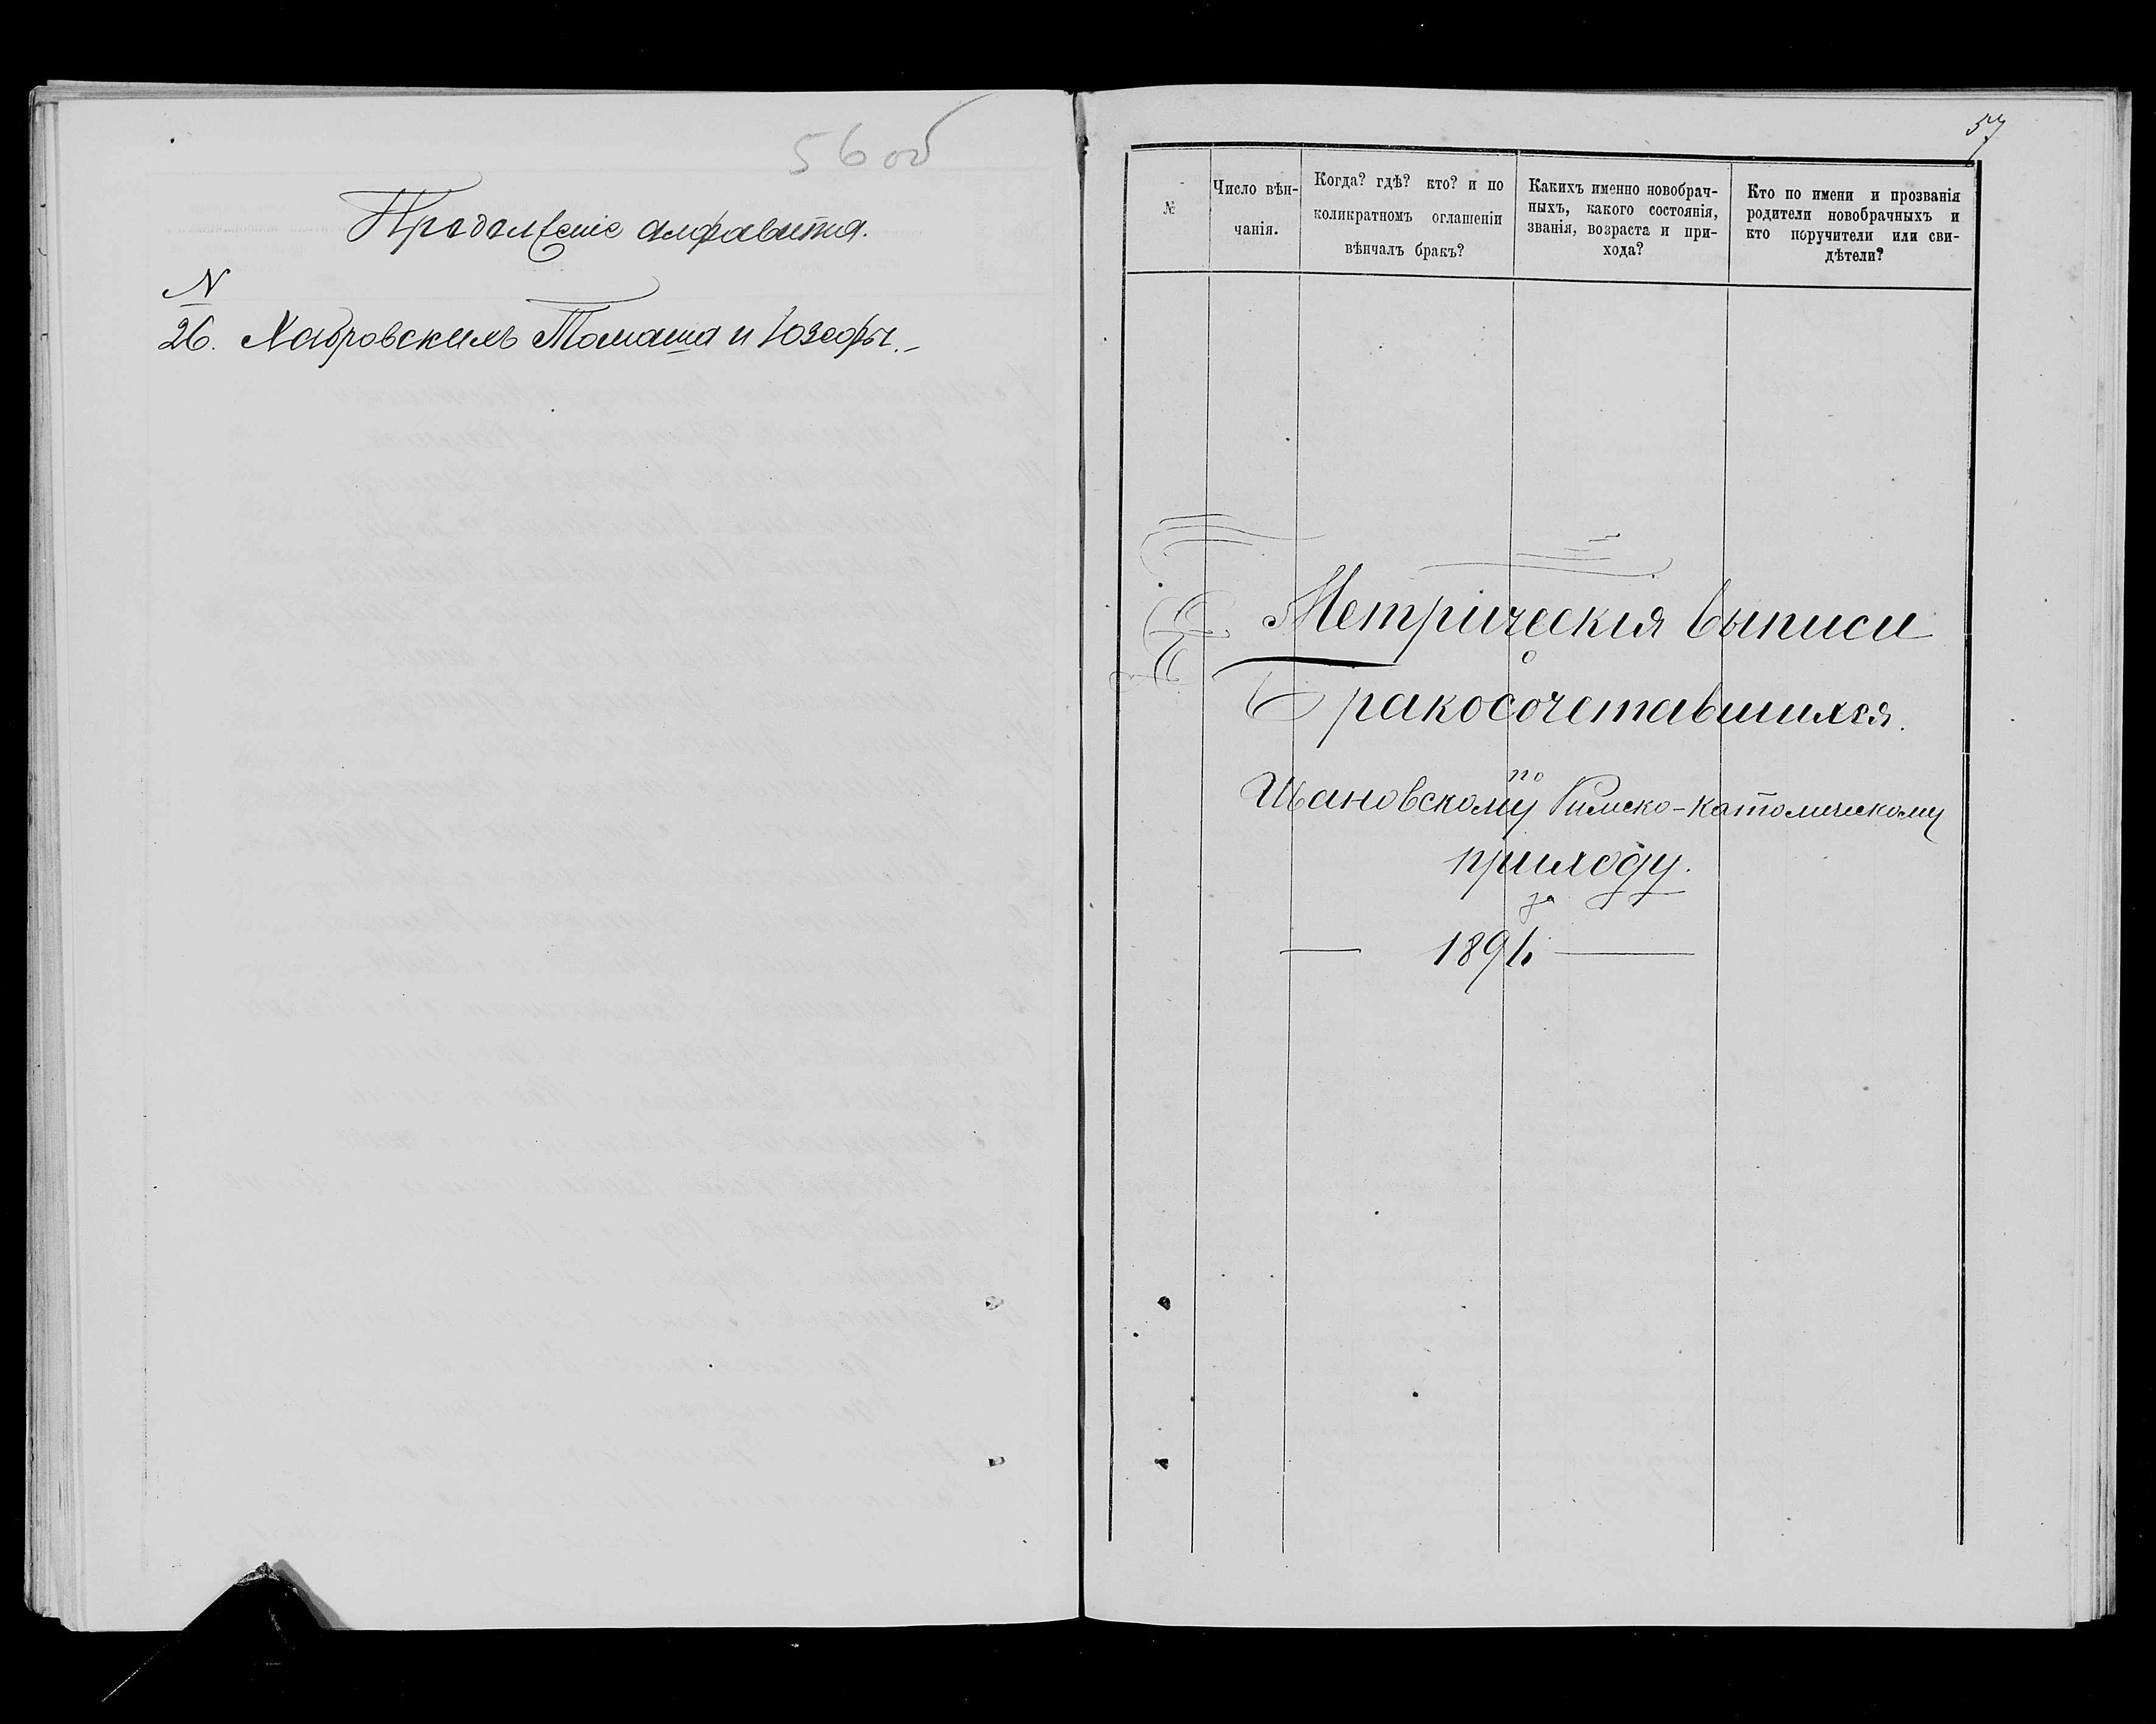 56об
Продолженіе алфавита.
N
26. Хабровскихъ Томаша и Юзефы.
57
№
Число вѣн-
чанія.
Когда? гдѣ? кто? и по
коликратномъ оглашеніи
вѣнчалъ бракъ?
Какихъ именно новобрач-
ныхъ, какого состоянія,
званія, возраста и при-
хода?
Кто по имени и прозванія
родители новобрачныхъ и
кто поручители или сви-
дѣтели?
Метрическія выписи
о
Бракосочетавшихся.
по
Ивановскому Римско-католическому
приходу.
за